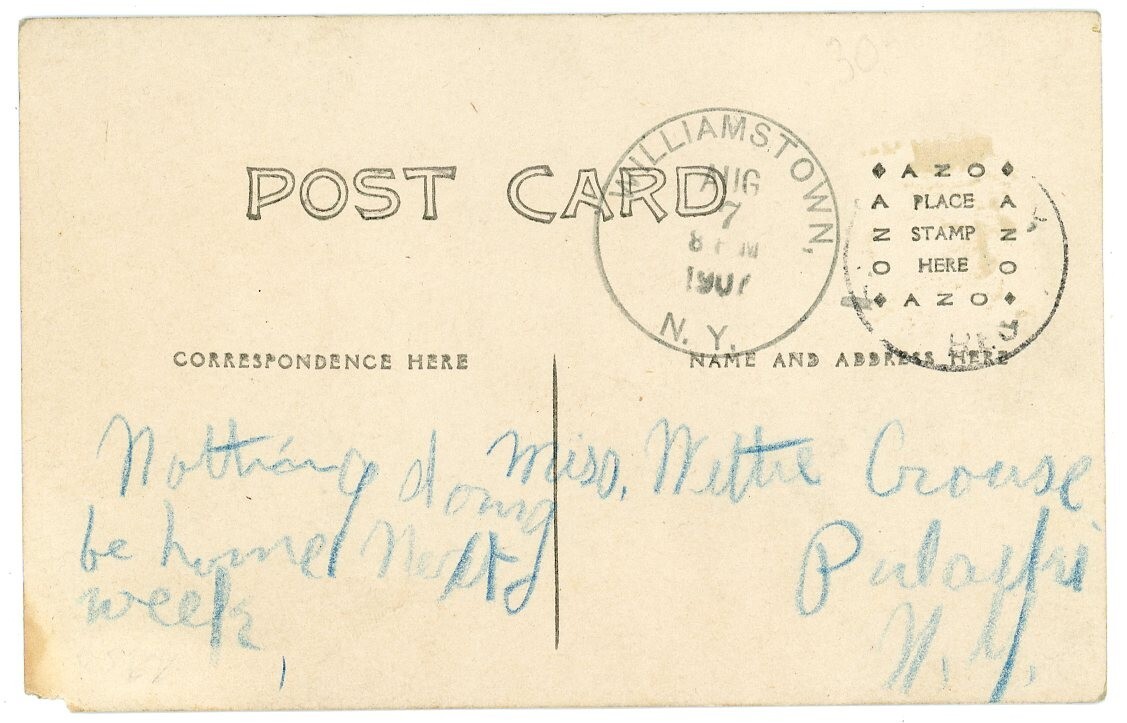 30
POST CARD
WILLIAMSTOWN,
AUG
7
8 PM
1907
N. Y.
AZO
AZO
PLACE
STAMP
HERE
AZO
AZO
CORRESPONDENCE HERE
NAME AND ADDRESS HERE
Nothing doing
be home Next
week
Miss. Nettie Crouse
Pulaski
N. Y.